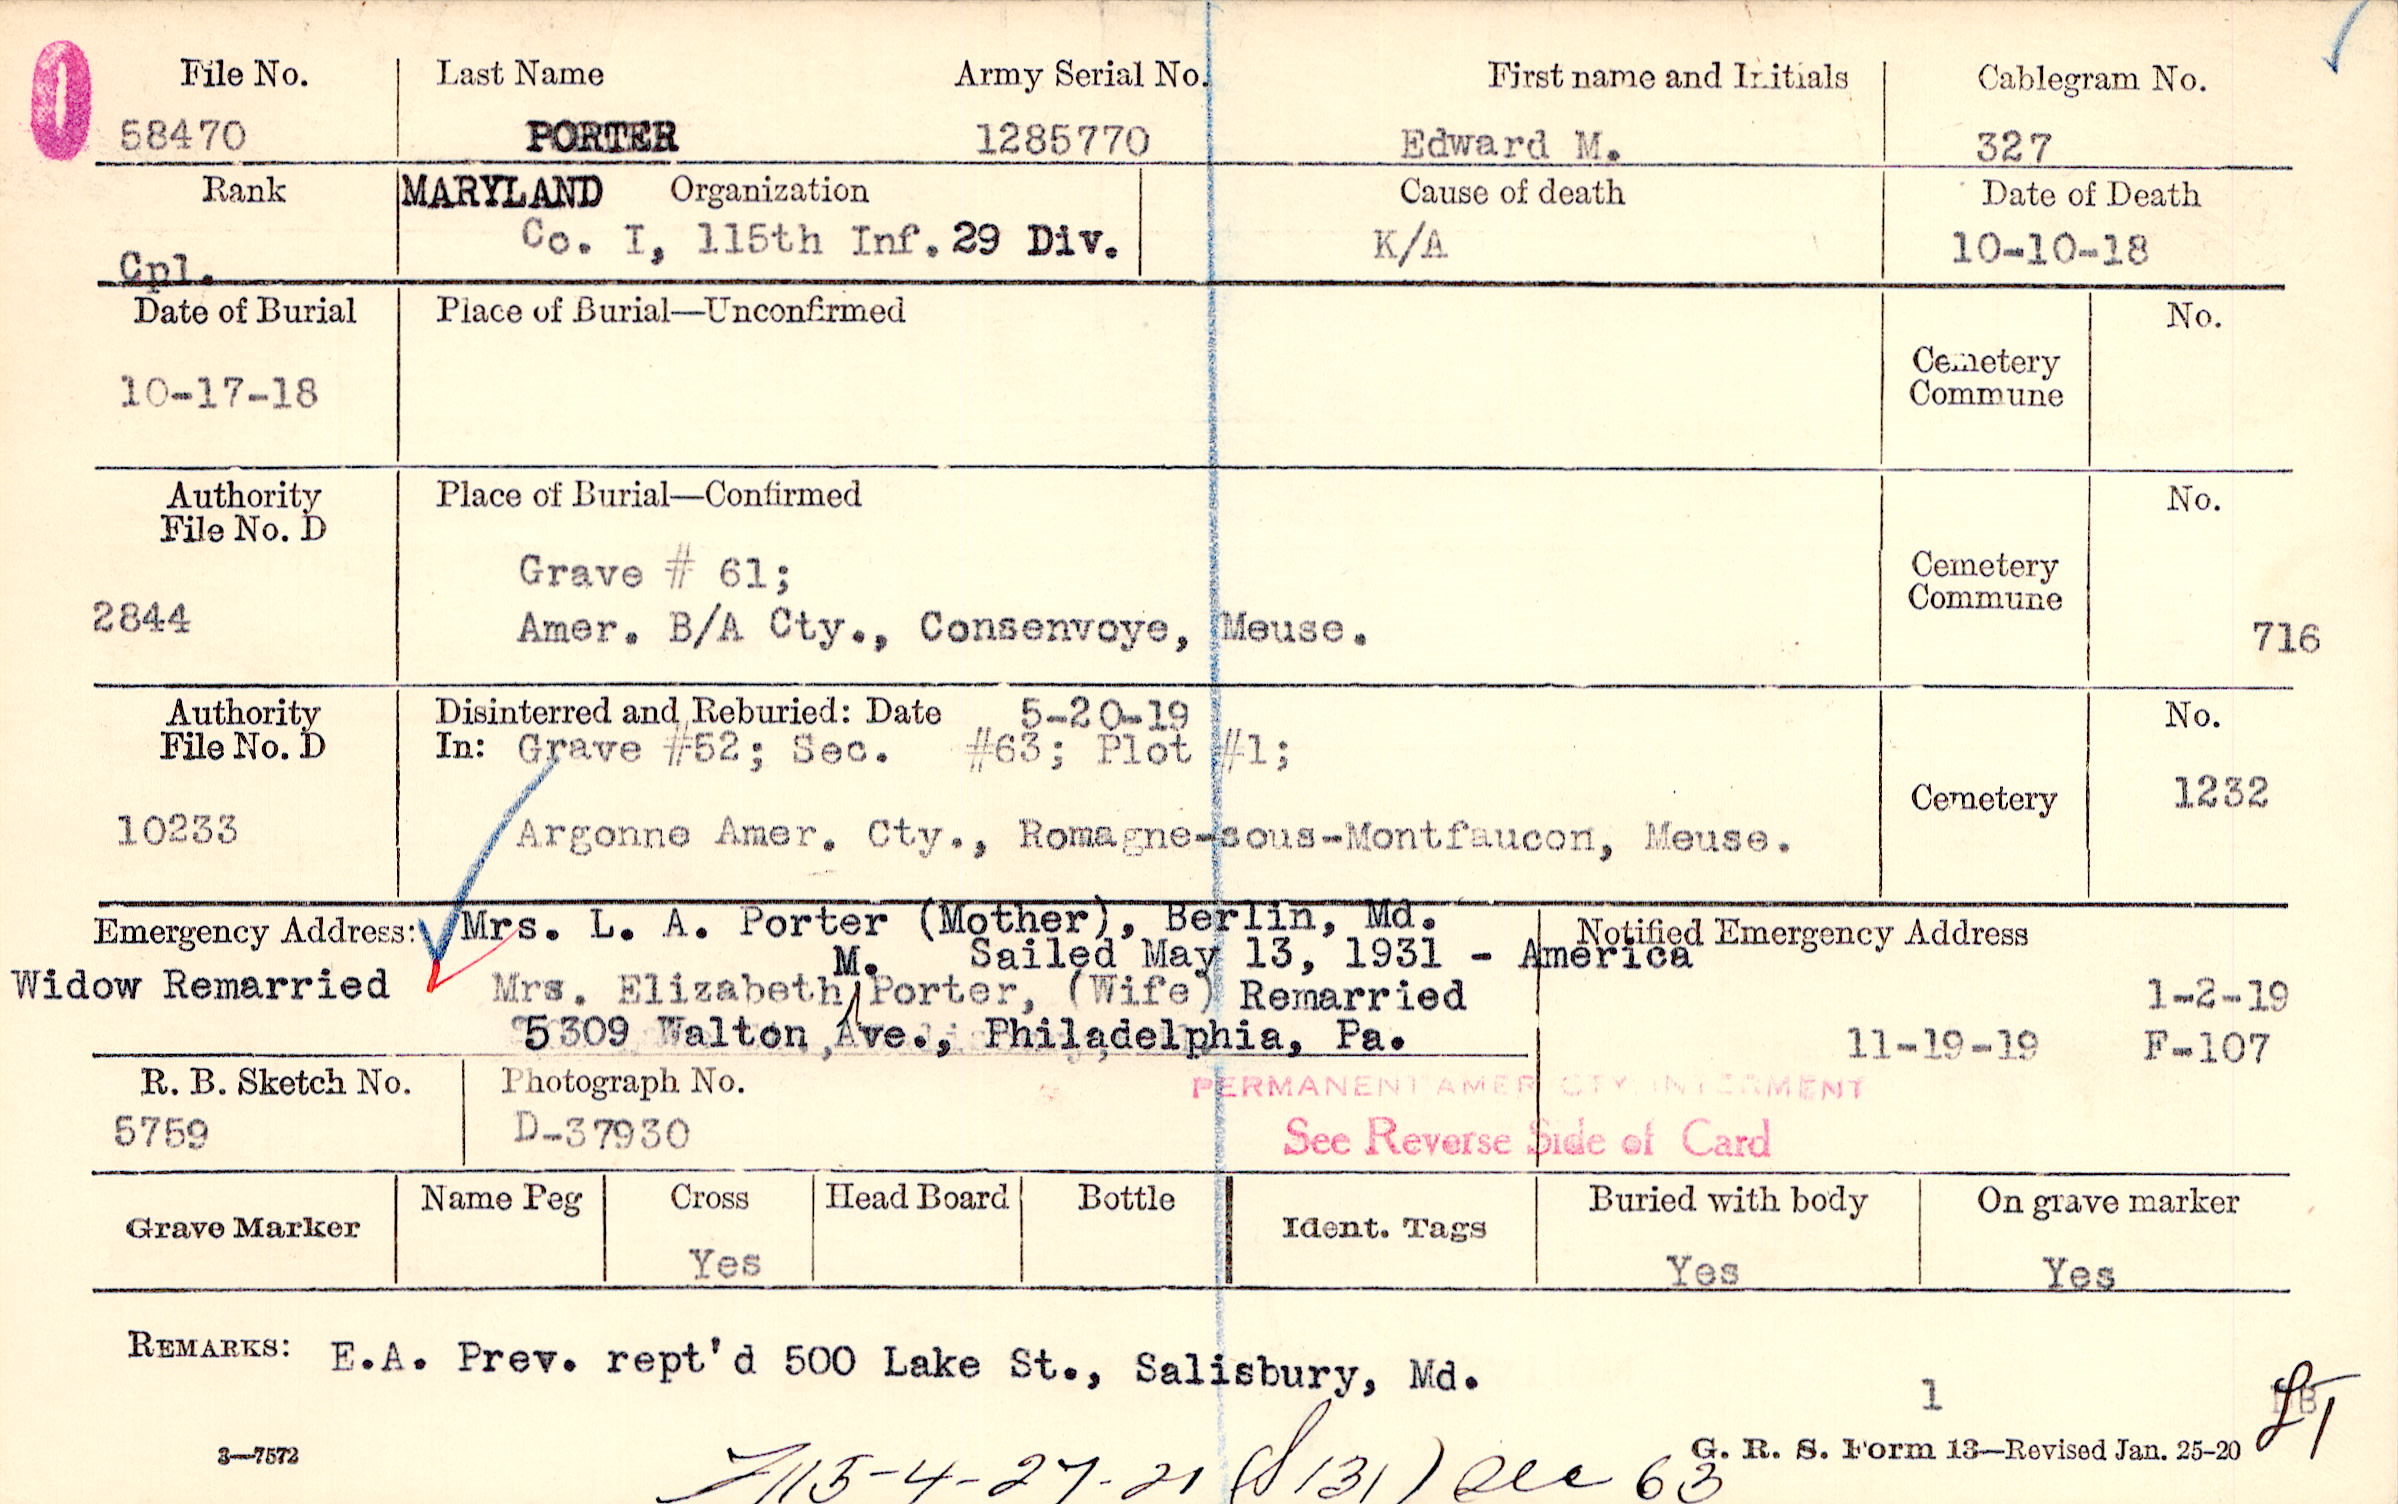 File No. Last Name Army Serial No. First name and Initials Cablegram No.
58470 PORTER 1285770 Edward M. 327
Rank MARYLAND Organization Cause of death Date of Death
Cpl. Co. I, 115th Inf. 29 Div. K/A 10-10-18
Date of Burial Place of Burial—Unconfirmed No.
10-17-18 Cemetery
Commune
Authority Place of Burial—Confirmed No.
File No. D
Grave # 61; Cemetery
2844 Amer. B/A Cty., Consenvoye, Meuse. Commune 716
Authority Disinterred and Reburied: Date 5-20-19 No.
File No. D In: Grave #52; Sec. #63; Plot #1;
10233 Argonne Amer. Cty., Romagne-sous-Montfaucon, Meuse. Cemetery 1232
Emergency Address: Mrs. L. A. Porter (Mother), Berlin, Md. Notified Emergency Address
M. Sailed May 13, 1931 - America
Widow Remarried Mrs. Elizabeth Porter, (Wife) Remarried 1-2-19
5309 Walton Ave., Philadelphia, Pa. 11-19-19 F-107
R. B. Sketch No. Photograph No. PERMANENT AMER CTY INTERMENT
5759 D-37930 See Reverse Side of Card
Grave Marker Name Peg Cross Head Board Bottle Ident. Tags Buried with body On grave marker
Yes Yes Yes
REMARKS: E.A. Prev. rept'd 500 Lake St., Salisbury, Md.
1
3—7572 G. R. S. Form 13—Revised Jan. 25-20
4-27-21 63